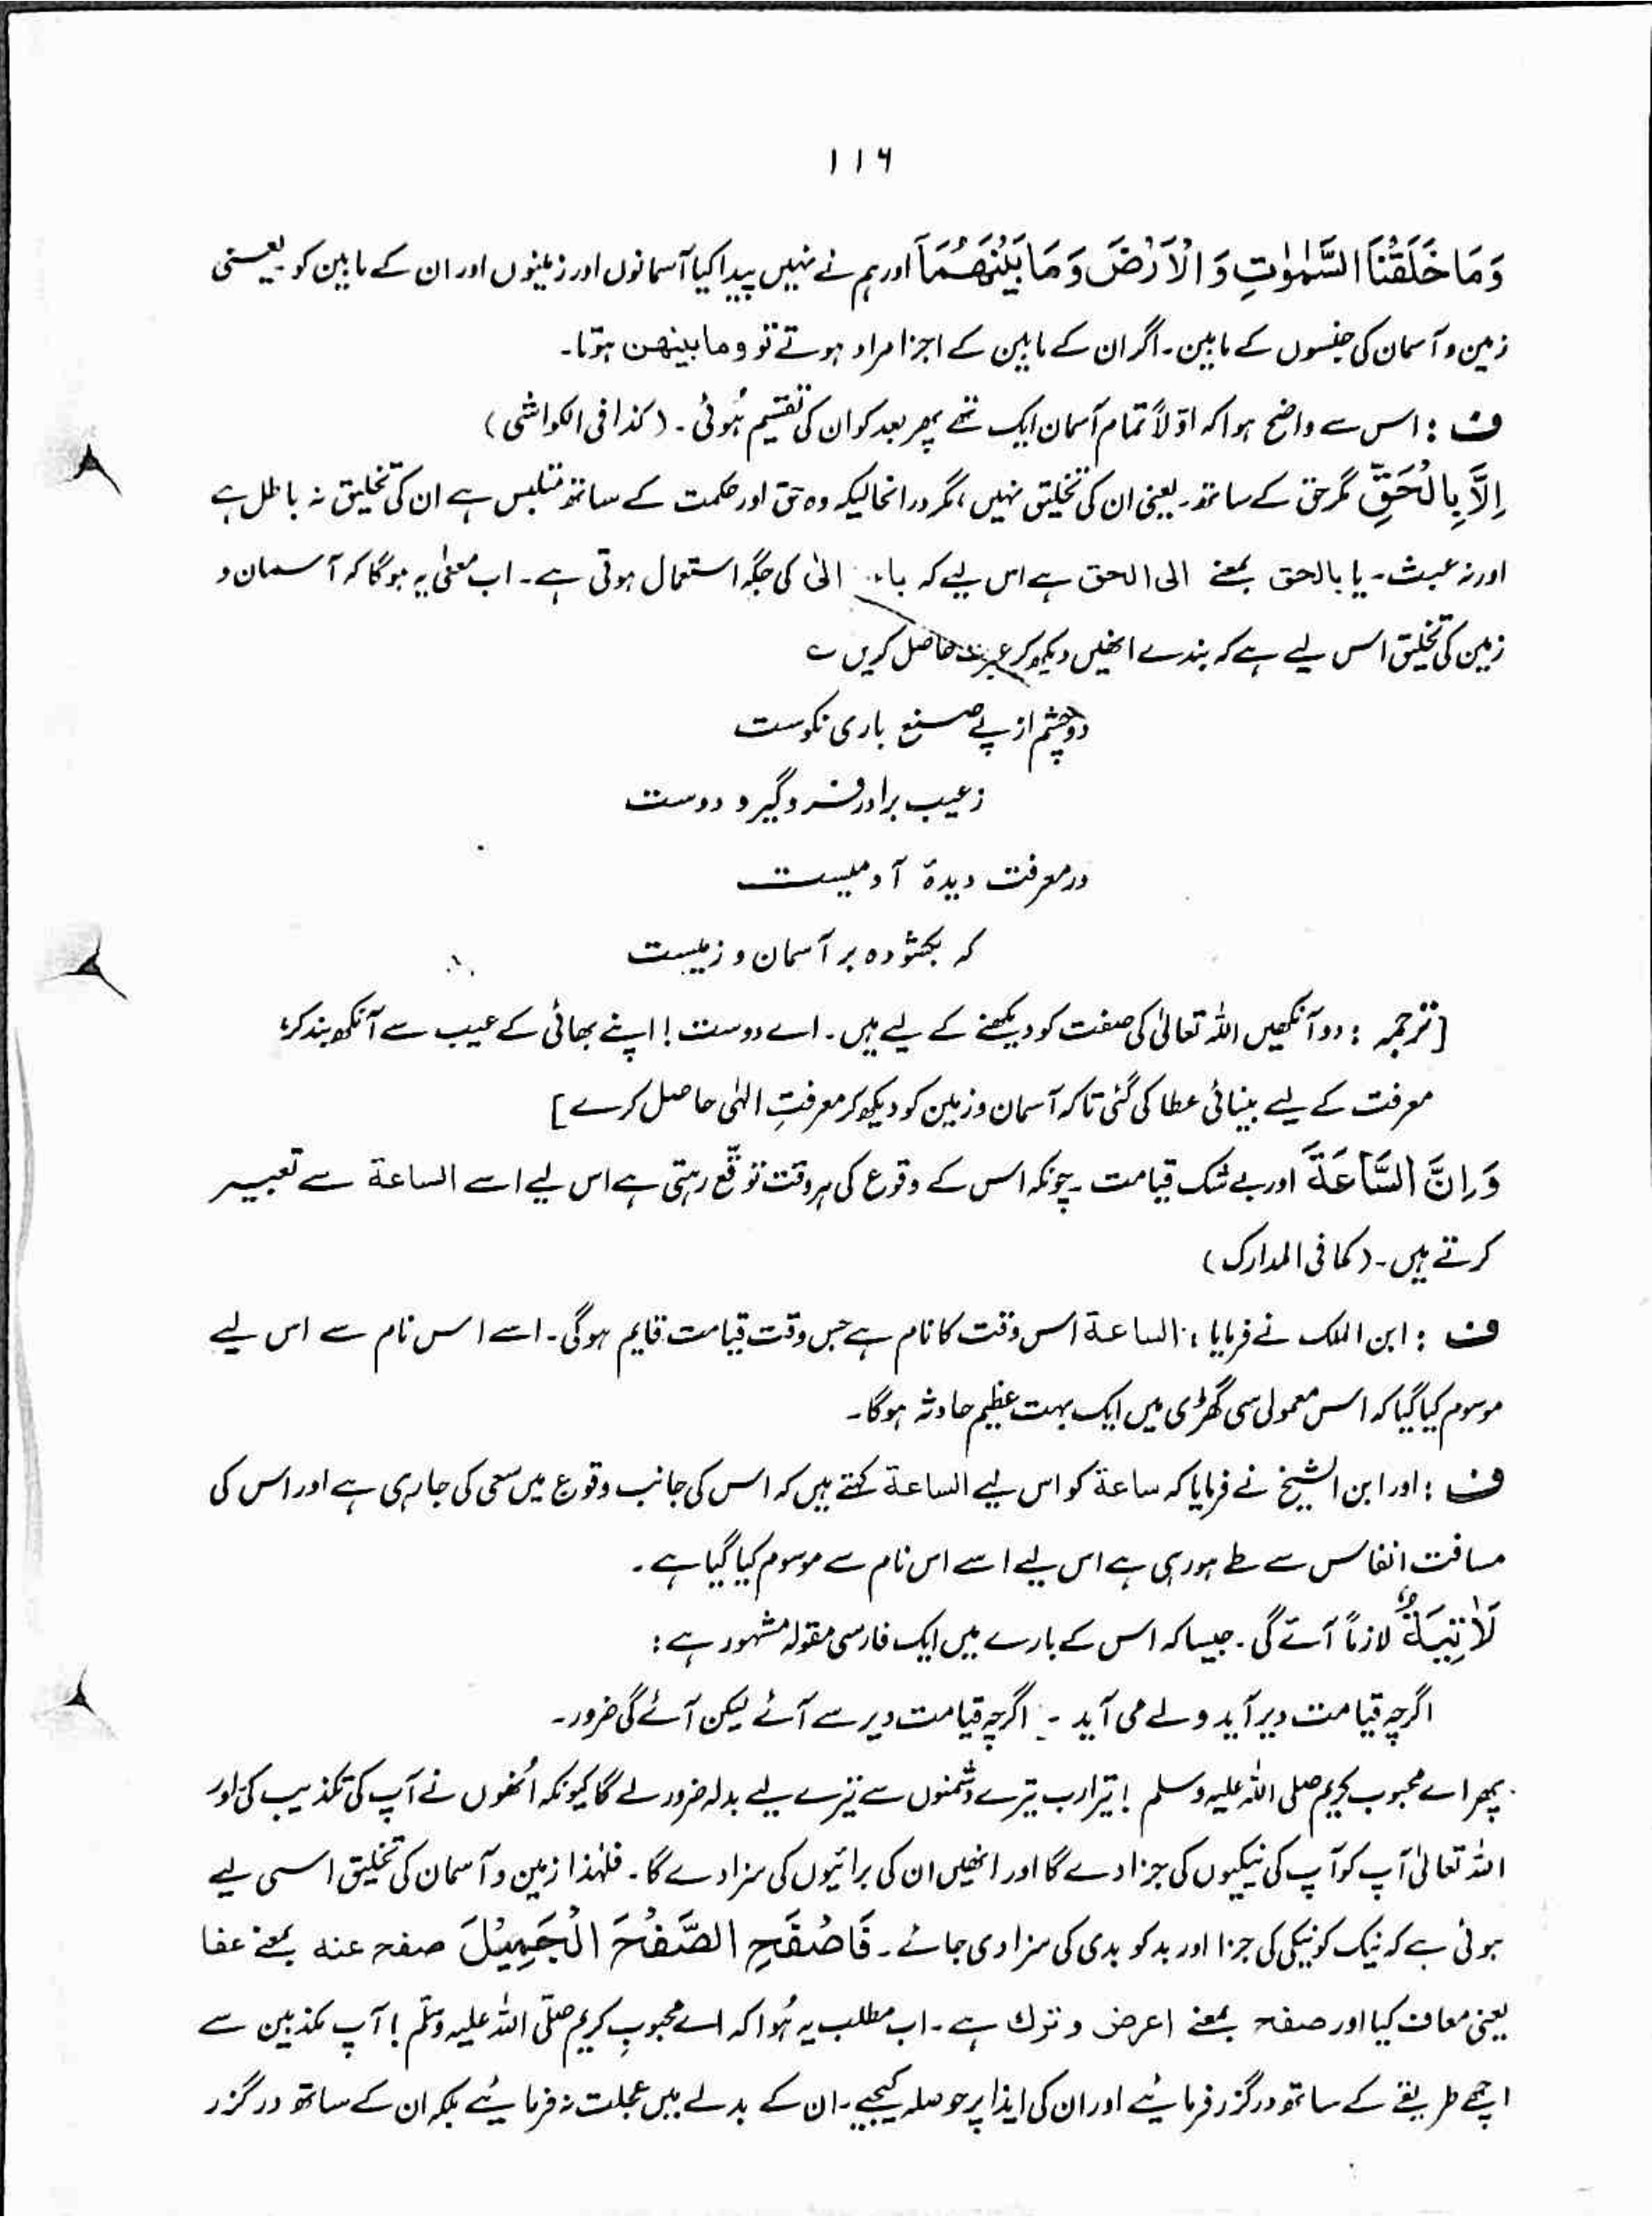 ۱۱۶
وَمَا خَلَقْنَا السَّمٰوٰتِ وَالْاَرْضَ وَمَا بَيْنَهُمَآ اور ہم نے نہیں پیدا کیا آسمانوں اور زمینوں اور ان کے مابین کو یعنی
زمین و آسمان کی جنسوں کے مابین۔ اگر ان کے مابین کے اجزا مراد ہوتے تو وما بینھن ہوتا۔
ف : اس سے واضح ہوا کہ اوّلاً تمام آسمان ایک تھے پھر بعد کو ان کی تقسیم ہُوئی۔ (کذا فی الکواشی)
اِلَّا بِالْحَقِّ مگر حق کے ساتھ۔ یعنی ان کی تخلیق نہیں، مگر درانحالیکہ وہ حق اور حکمت کے ساتھ متلبس ہے ان کی تخلیق نہ باطل ہے
اور نہ عبث۔ یا بالحق بمعنے الی الحق ہے اس لیے کہ باء الیٰ کی جگہ استعمال ہوتی ہے۔ اب معنیٰ یہ ہوگا کہ آسمان و
زمین کی تخلیق اس لیے ہے کہ بندے انھیں دیکھ کر عبرت حاصل کریں ؎
دو چشم از پے صنع باری نکوست
ز عیب برادر فرو گیر و دوست
در معرفت دیدۂ آدمیست
کہ بکشودہ بر آسمان و زمیست
[ترجمہ : دو آنکھیں اللہ تعالیٰ کی صفت کو دیکھنے کے لیے ہیں۔ اے دوست! اپنے بھائی کے عیب سے آنکھ بند کر۔
معرفت کے لیے بینائی عطا کی گئی تاکہ آسمان و زمین کو دیکھ کر معرفتِ الٰہی حاصل کرے]
وَاِنَّ السَّاعَةَ اور بے شک قیامت۔ چونکہ اس کے وقوع کی ہر وقت توقّع رہتی ہے اس لیے اسے الساعة سے تعبیر
کرتے ہیں۔ (کما فی المدارک)
ف : ابن الملک نے فرمایا : الساعة اس وقت کا نام ہے جس وقت قیامت قایم ہوگی۔ اسے اس نام سے اس لیے
موسوم کیا گیا کہ اس معمولی سی گھڑی میں ایک بہت عظیم حادثہ ہوگا۔
ف : اور ابن الشیخ نے فرمایا کہ ساعة کو اس لیے الساعة کہتے ہیں کہ اس کی جانب وقوع میں سعی کی جارہی ہے اور اس کی
مسافت انفاس سے طے ہورہی ہے اس لیے اسے اس نام سے موسوم کیا گیا ہے۔
لَاٰتِيَةٌ لازماً آئے گی۔ جیسا کہ اس کے بارے میں ایک فارسی مقولہ مشہور ہے :
اگرچہ قیامت دیر آید ولے می آید - اگرچہ قیامت دیر سے آئے لیکن آئے گی ضرور۔
پھر اے محبوب کریم صلی اللہ علیہ وسلم ! تیرا رب تیرے دشمنوں سے تیرے لیے بدلہ ضرور لے گا کیونکہ اُنھوں نے آپ کی تکذیب کی اور
اللہ تعالیٰ آپ کو آپ کی نیکیوں کی جزا دے گا اور انھیں ان کی برائیوں کی سزا دے گا۔ فلہٰذا زمین و آسمان کی تخلیق اسی لیے
ہوئی ہے کہ نیک کو نیکی کی جزا اور بد کو بدی کی سزا دی جائے۔ فَاصْفَحِ الصَّفْحَ الْجَمِيْلَ صفح عنہ بمعنے عفا
یعنی معاف کیا اور صفح بمعنے اعرض و ترك ہے۔ اب مطلب یہ ہُوا کہ اے محبوبِ کریم صلّی اللہ علیہ وسلّم ! آپ مکذبین سے
اچھے طریقے کے ساتھ درگزر فرمائیے اور ان کی ایذا پر حوصلہ کیجیے۔ ان کے بدلے میں عجلت نہ فرمائیے بلکہ ان کے ساتھ درگزر